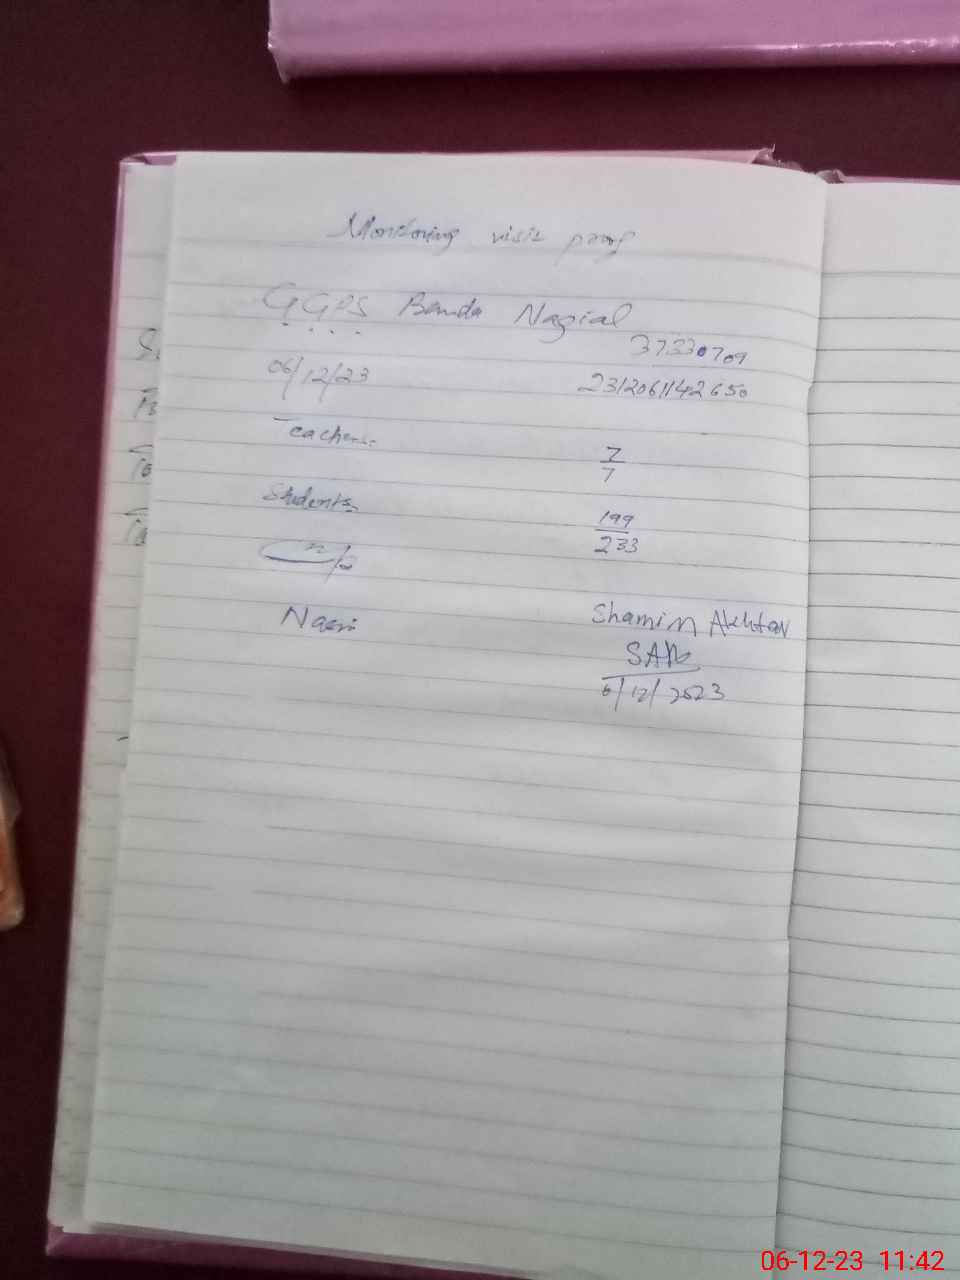 Monitoring visit proof
GGPS Banda Nagial
37330709
06/12/23 2312061142650
Teachers. 7/7
Students 199/233
Shamim Akhtar
6/12/2023
06-12-23 11:42